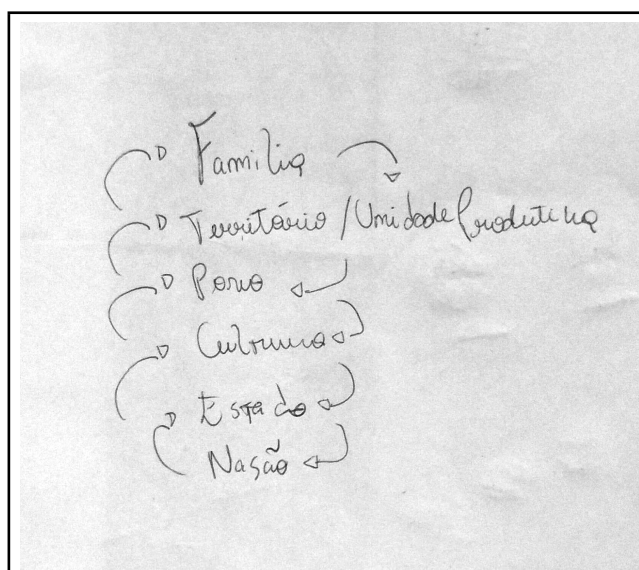 Familia
Território / Unidade Produtiva
Povo
Cultura
Estado
Nação